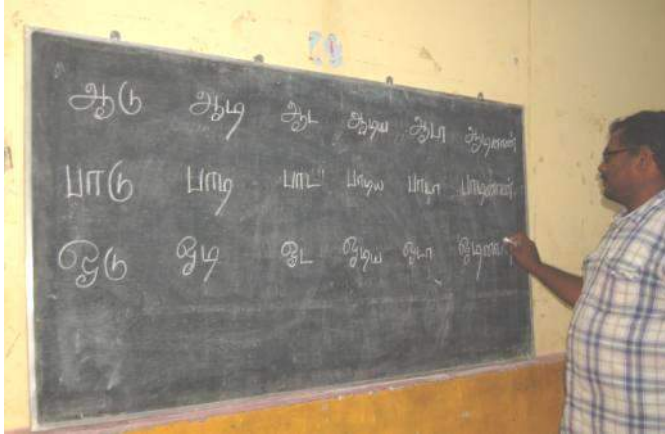 ஆடு ஆடி ஆட ஆடிய ஆடா ஆடினான்
பாடு பாடி பாட பாடிய பாடா பாடினான்.
ஓடு ஓடி ஓட ஓடிய ஓடா